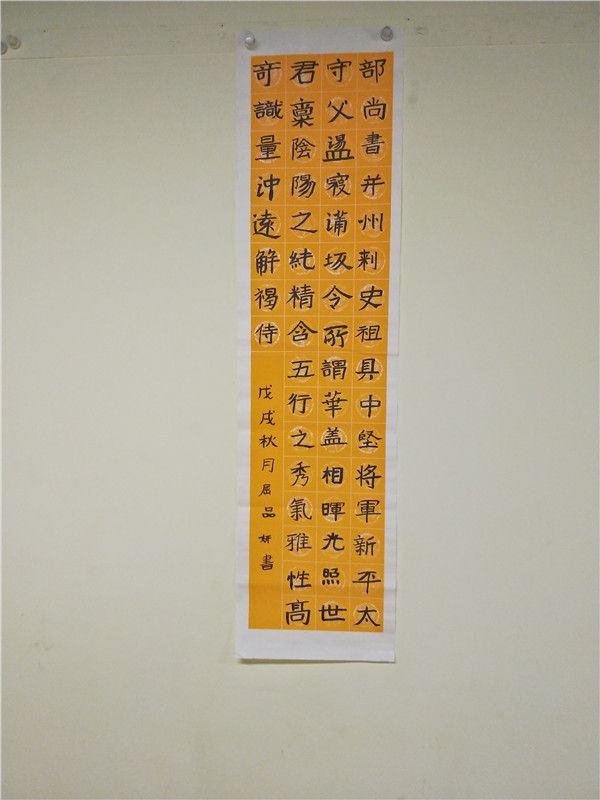 部尚書并州刺史祖具中堅將軍新平太
守父盪寇蒲坂令所謂華盖相暉光照世
君稟陰陽之純精含五行之秀氣雅性高
奇識量沖遠解褐侍
戊戌秋月屈品妍書